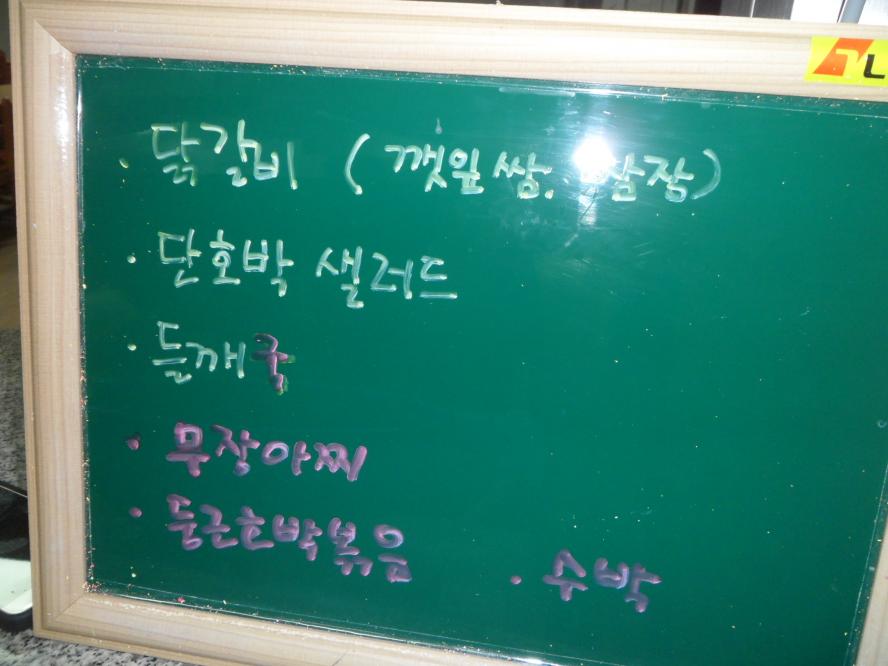 · 닭갈비 (깻잎쌈. 쌀장)
· 단호박 샐러드
· 들깨국
· 무장아찌
· 둥근호박볶음
· 수박